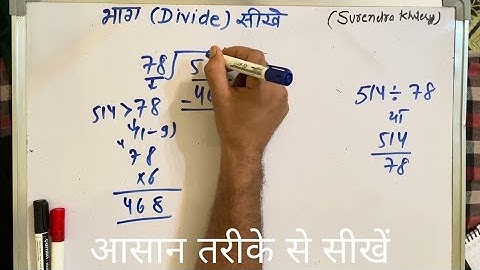 भाग (Divide) सीखे
(Surendra Khilery)
78) 5
514 > 78
(1-9)
78
×6
468
= 46
514 ÷ 78
या
514
78
आसान तरीके से सीखें